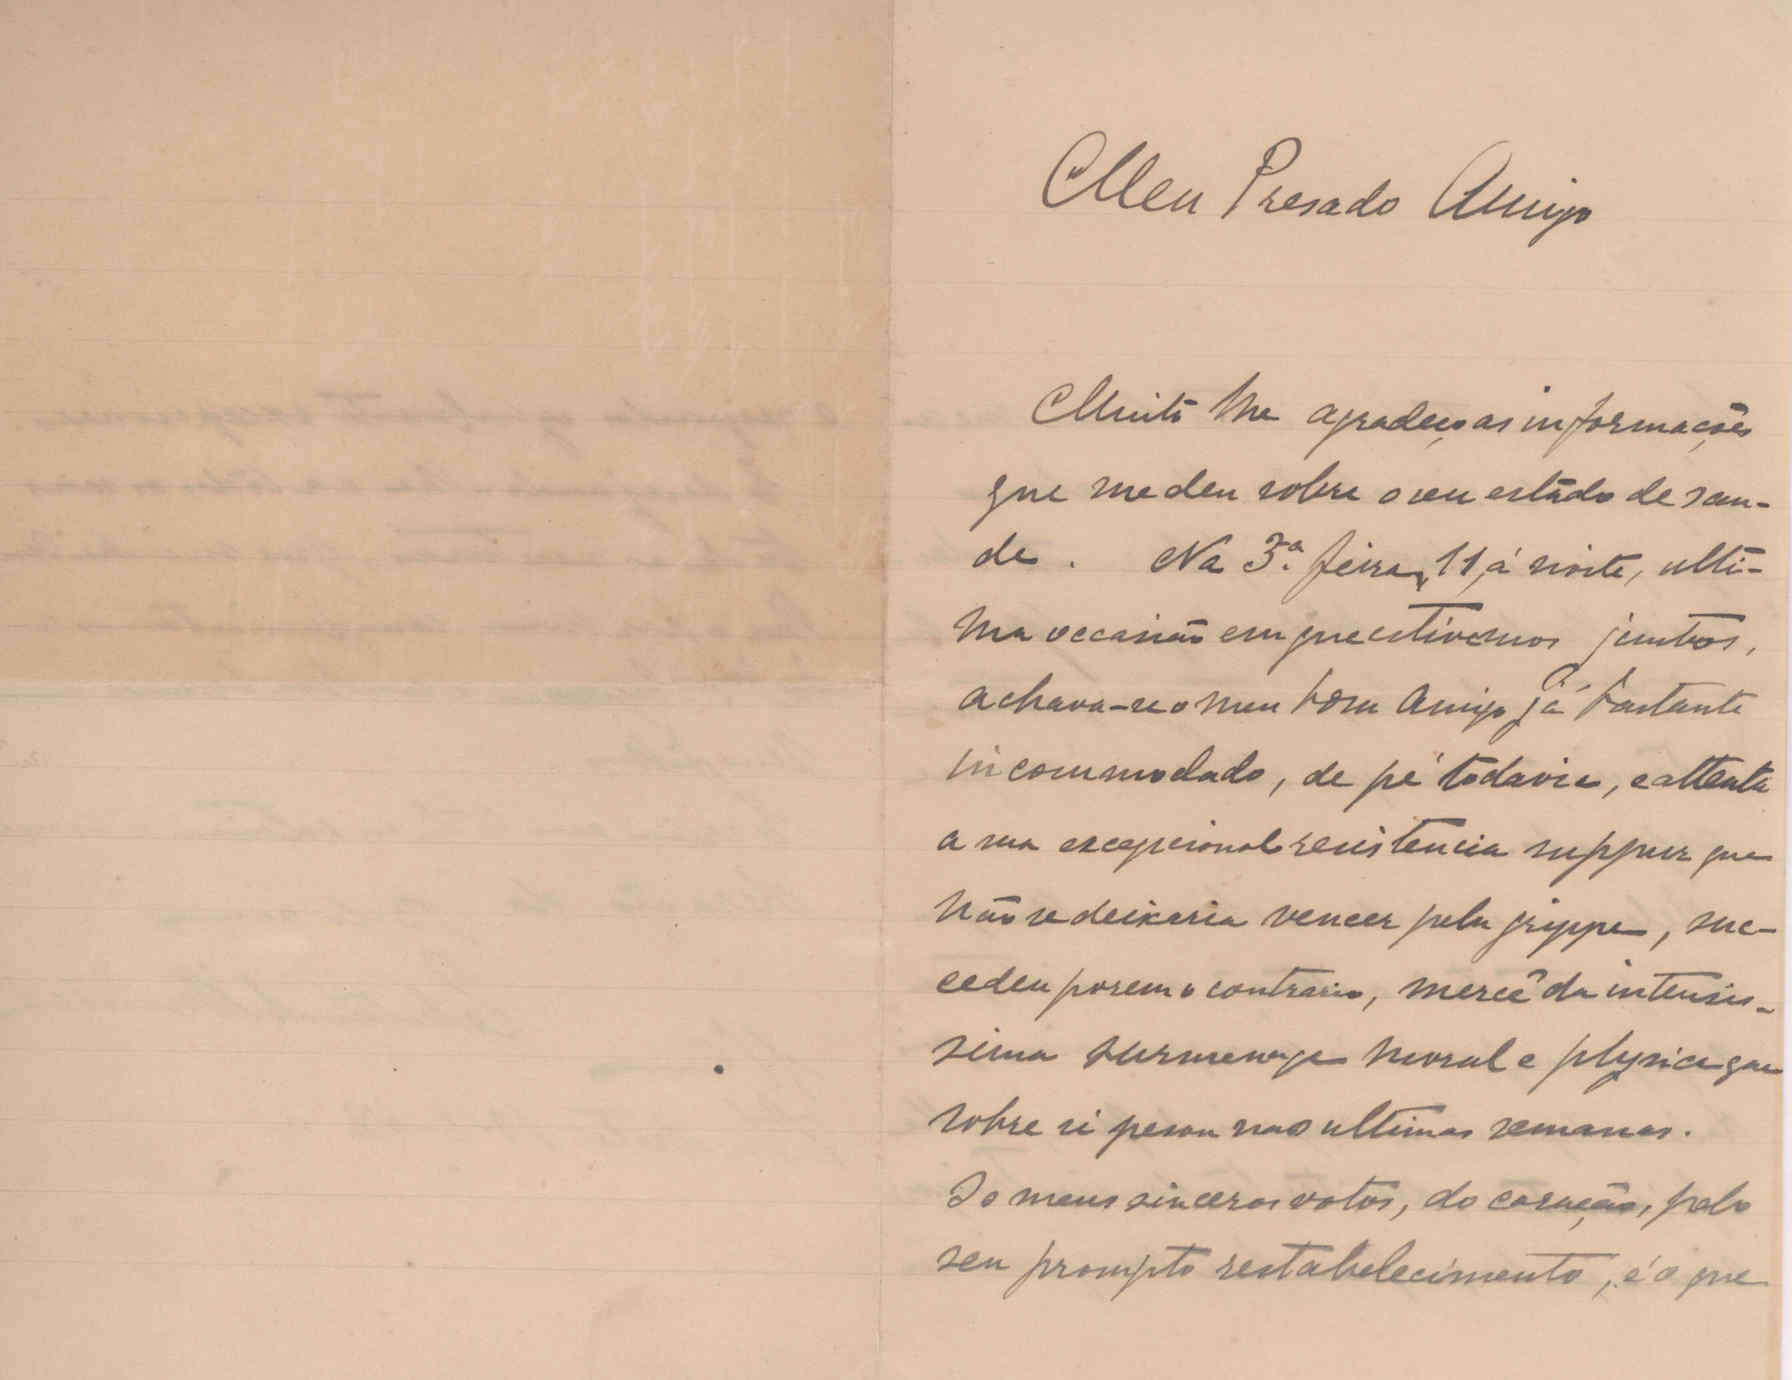 Meu Presado Amigo
Muito lhe agradeço as informações
que me deu sobre o seu estado de sau-
de. Na 3.ª feira, 11, á noite, ulti-
ma occasião em que estivemos juntos,
achava-se o meu bom Amigo já bastante
incommodado, de pé todavia, e attenta
a sua excepcional resistencia suppuz que
não se deixaria vencer pela grippe, suc-
cedeu porem o contrario, mercê da intensis-
sima surmenage moral e physica que
sobre si pesou nas ultimas semanas.
Os meus sinceros votos, do coração, pelo
seu prompto restabelecimento, é o que